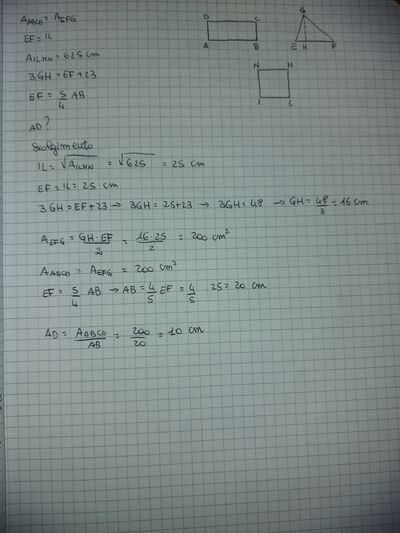 A_ABCD = A_EFG
EF = IL
A_ILMN = 625 cm
3GH = EF + 23
EF = 5/4 AB
AD?
D C
A B
G
E H F
N M
I L
Svolgimento
IL = √A_ILMN = √625 = 25 cm
EF = IL = 25 cm
3GH = EF + 23 → 3GH = 25 + 23 → 3GH = 48 → GH = 48/3 = 16 cm
A_EFG = GH · EF / 2 = 16 · 25 / 2 = 200 cm²
A_ABCD = A_EFG = 200 cm²
EF = 5/4 AB → AB = 4/5 EF = 4/5 · 25 = 20 cm
AD = A_ABCD / AB = 200/20 = 10 cm